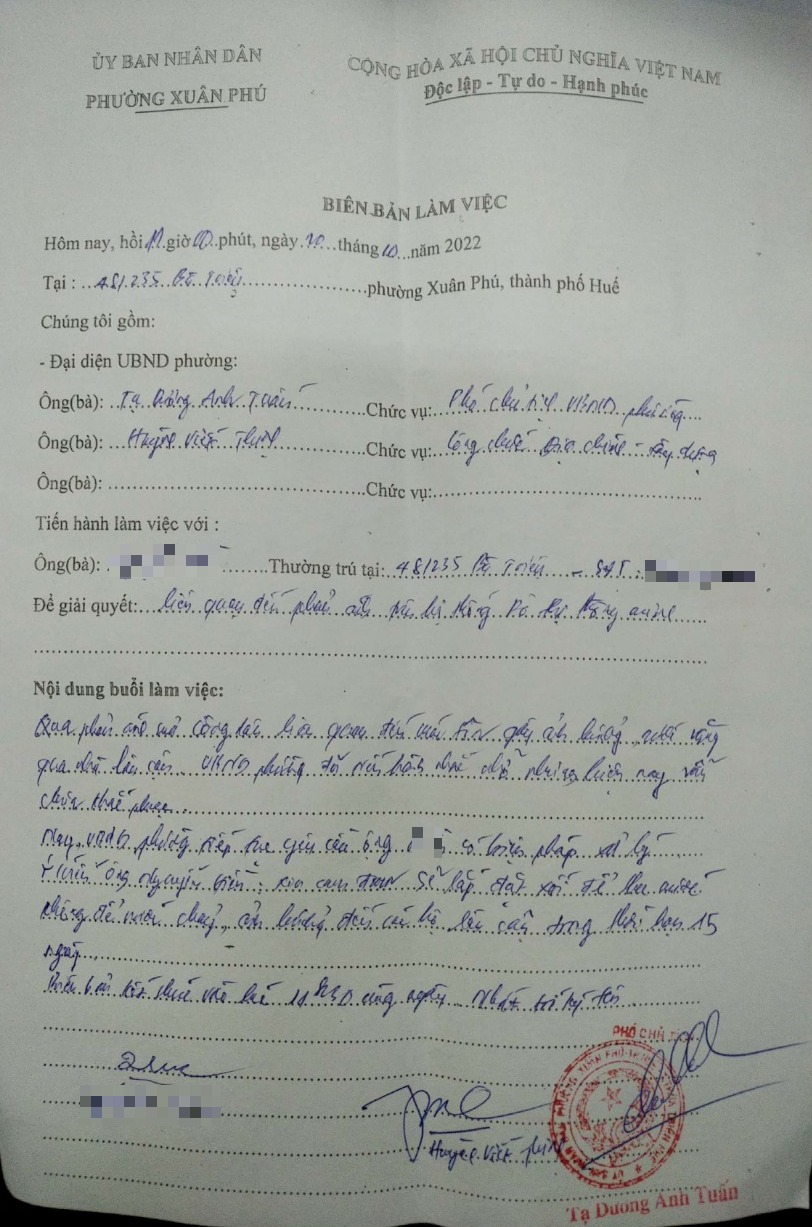 ỦY BAN NHÂN DÂN
PHƯỜNG XUÂN PHÚ
CỘNG HÒA XÃ HỘI CHỦ NGHĨA VIỆT NAM
Độc lập - Tự do - Hạnh phúc
BIÊN BẢN LÀM VIỆC
Hôm nay, hồi giờ 00 phút, ngày 20 tháng 10 năm 2022
Tại : 48/235 Bà Triệu phường Xuân Phú, thành phố Huế
Chúng tôi gồm:
- Đại diện UBND phường:
Ông(bà): Tạ Dương Anh Tuấn Chức vụ: Phó chủ tịch UBND phường
Ông(bà): Huỳnh Viết Chức vụ: Công chức Địa chính - Xây dựng
Ông(bà): Chức vụ:
Tiến hành làm việc với :
Ông(bà): Thường trú tại: 48/235 Bà Triệu - SĐT :
Để giải quyết: liên quan đến phản ánh
Nội dung buổi làm việc:
Qua phản ánh liên quan đến mái tôn gây ảnh hưởng
qua nhà lân cận. UBND phường đã nhắc nhở nhưng hiện nay vẫn
chưa khắc phục.
Nay, UBND phường tiếp tục yêu cầu ông có biện pháp xử lý
Ý kiến ông : xin cam đoan sẽ lắp đặt để thu nước
không để nước chảy, ảnh hưởng đến các hộ lân cận trong thời hạn 15
ngày.
Biên bản kết thúc vào lúc 11h30 cùng ngày. Nhất trí ký tên.
PHÓ CHỦ
Huỳnh Viết
Tạ Dương Anh Tuấn